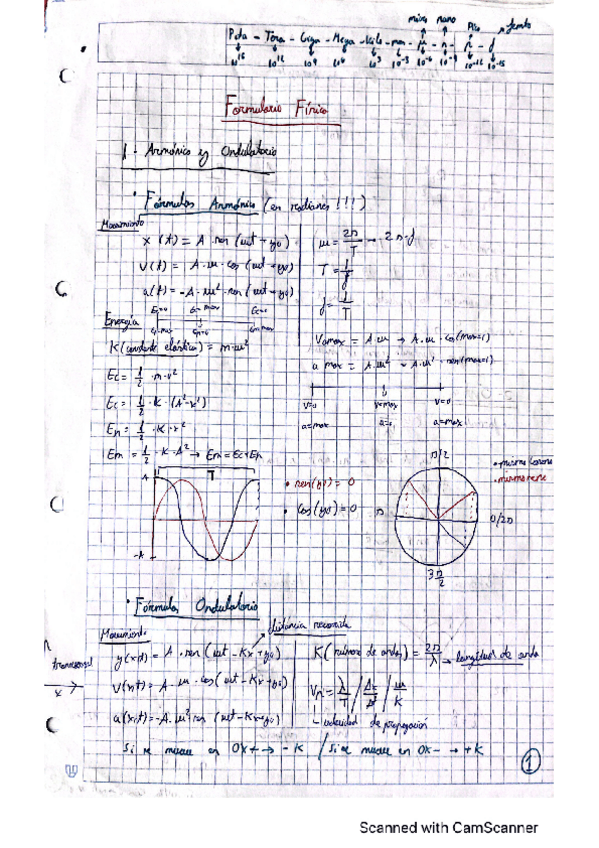 micro nano Pico femto
Peta - Tera - Giga - Mega - Kilo - mm - μ - n - p - f
10¹⁵ 10¹² 10⁹ 10⁶ 10³ 10⁻³ 10⁻⁶ 10⁻⁹ 10⁻¹² 10⁻¹⁵
Formulario Físico
1- Armónico y Ondulatorio
• Fórmulas Armónico (en radianes !!!)
Movimiento
x(t) = A · sen(ωt + φ0)
v(t) = A · ω · cos(ωt + φ0)
a(t) = -A · ω² · sen(ωt + φ0)
ω = 2π/T → 2π·f
T = 1/f
f = 1/T
Energía
K (constante elástica) = m·ω²
Ec = 1/2 · m·v²
Ec = 1/2 · K · (A²-x²)
Ep = 1/2 · K · x²
Em = 1/2 · K · A² → Em = Ec + Ep
Vmax = A·ω → A·ω · cos(max=1)
a max = A·ω² → A·ω² · sen(max=1)
v=0 v=max v=0
a=max a=0 a=max
A T
-A
• sen(φ0) = 0
• cos(φ0) = 0
π/2
π 0/2π
3π/2
• mismo coseno
• mismo seno
• Fórmulas Ondulatorio
Movimiento
distancia recorrida
transversal
x
y(x,t) = A · sen(ωt - Kx + φ0)
v(x,t) = A · ω · cos(ωt - Kx + φ0)
a(x,t) = -A · ω² sen(ωt - Kx + φ0)
K (número de onda) = 2π/λ → longitud de onda
Vp = λ/T / Δx/Δt / ω/K
velocidad de propagación
Si se mueve en OX+ → - K / Si se mueve en OX- → + K
1
Scanned with CamScanner